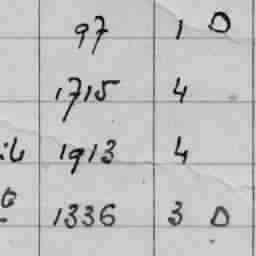 97 1 0
1715 4
1913 4
1336 3 0